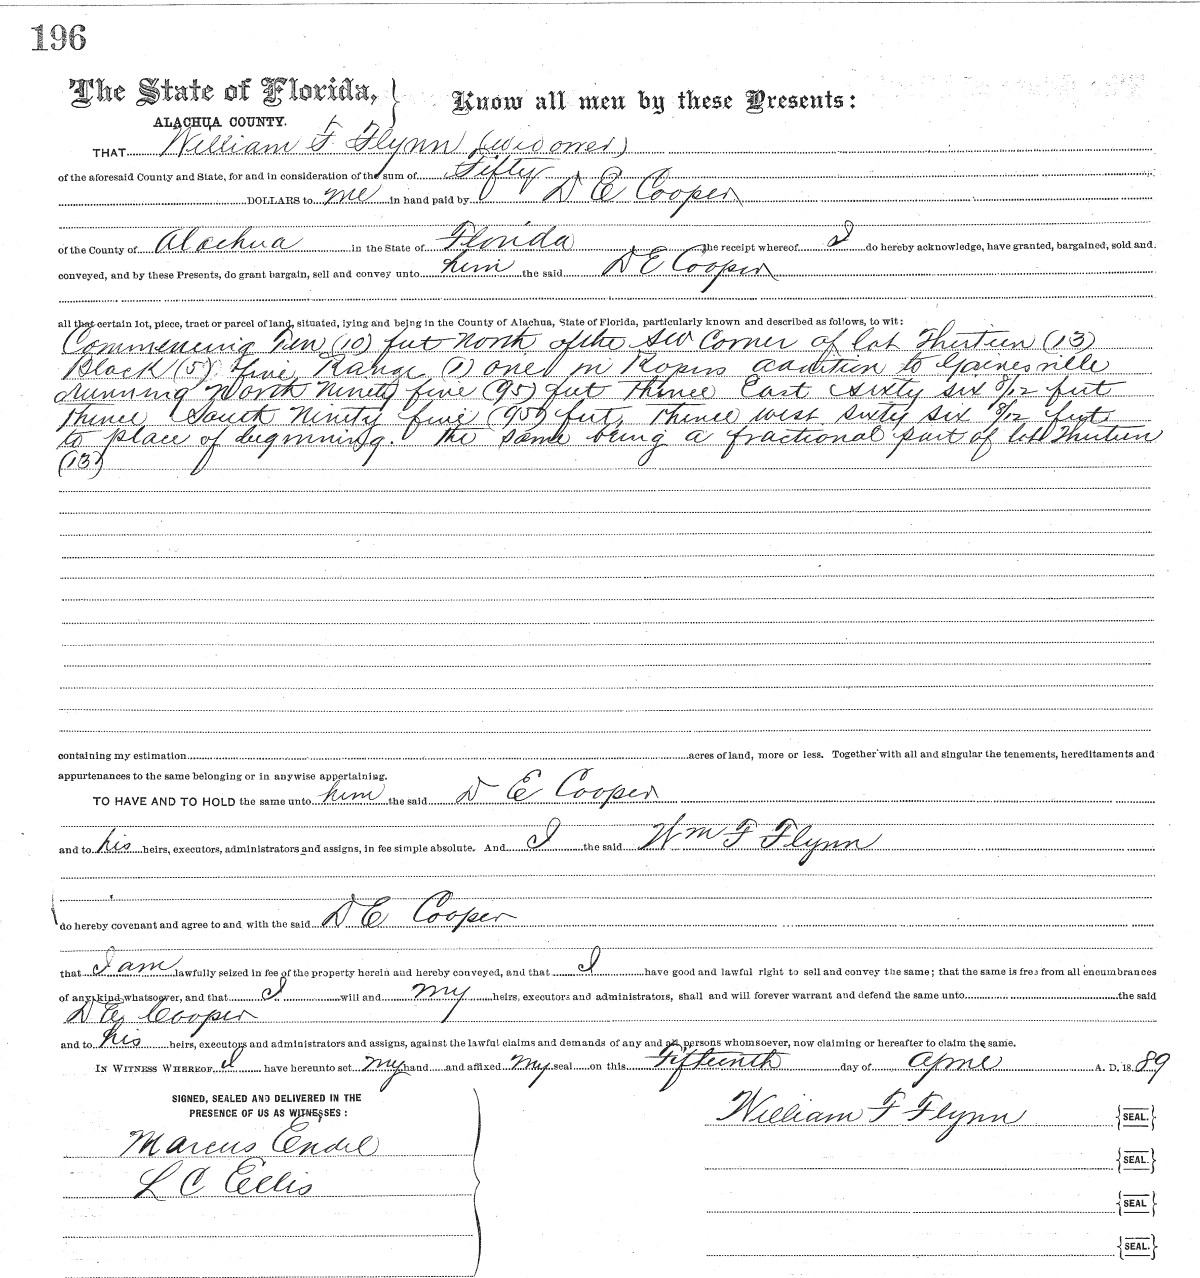 196
The State of Florida, } Know all men by these Presents:
ALACHUA COUNTY.
THAT William F Flynn (widower)
of the aforesaid County and State, for and in consideration of the sum of Fifty
DOLLARS to me in hand paid by D E Cooper
of the County of Alachua in the State of Florida the receipt whereof I do hereby acknowledge, have granted, bargained, sold and
conveyed, and by these Presents, do grant bargain, sell and convey unto him the said D E Cooper
all that certain lot, piece, tract or parcel of land, situated, lying and being in the County of Alachua, State of Florida, particularly known and described as follows, to wit:
Commencing Ten (10) feet North of the SW Corner of lot Thirteen (13)
Block (5) five Range (1) one in Ropers addition to Gainesville
running North Ninety five (95) feet Thence East sixty six 8/12 feet
Thence South Ninety five (95) feet, Thence west sixty six 8/12 feet
to place of beginning. The same being a fractional part of lot Thirteen
(13)
containing my estimation acres of land, more or less. Together with all and singular the tenements, hereditaments and
appurtenances to the same belonging or in anywise appertaining.
TO HAVE AND TO HOLD the same unto him the said D E Cooper
and to his heirs, executors, administrators and assigns, in fee simple absolute. And I the said Wm F Flynn
do hereby covenant and agree to and with the said D E Cooper
that I am lawfully seized in fee of the property herein and hereby conveyed, and that I have good and lawful right to sell and convey the same; that the same is free from all encumbrances
of any kind whatsoever, and that I will and my heirs, executors and administrators, shall and will forever warrant and defend the same unto the said
D E Cooper
and to his heirs, executors and administrators and assigns, against the lawful claims and demands of any and all persons whomsoever, now claiming or hereafter to claim the same.
IN WITNESS WHEREOF I have hereunto set my hand and affixed my seal on this Fifteenth day of April A. D. 1889
SIGNED, SEALED AND DELIVERED IN THE
PRESENCE OF US AS WITNESSES:
Marcus Endel
L C Ellis
William F Flynn {SEAL.}
{SEAL.}
{SEAL}
{SEAL.}